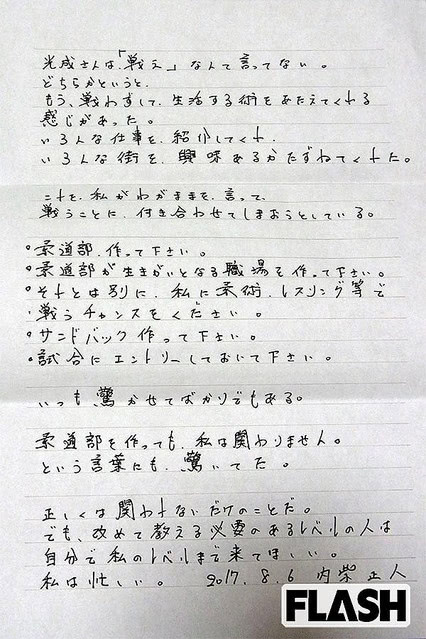 光成さんは、「戦え」なんて言ってない。
どちらかというと、
もう、戦わずして、生活する術をあたえてくれる
感じがあった。
いろんな仕事を、紹介してくれ、
いろんな街を、興味あるかたずねてくれた。
これを、私がわがままを、言って、
戦うことに、付き合わせてしまおうとしている。
・柔道部、作って下さい。
・柔道部が生きがいとなる職場を作って下さい。
・それとは別に、私に柔術、レスリング等で
戦うチャンスをください。
・サンドバック作って下さい。
・試合にエントリーしておいて下さい。
いつも、驚かせてばかりでもある。
柔道部を作っても、私は関わりません。
という言葉にも、驚いてた。
正しくは関われないだけのことだ。
でも、改めて教える必要のあるレベルの人は
自分で私のレベルまで来てほしい。
私は忙しい。 2017.8.6 内柴正人
FLASH